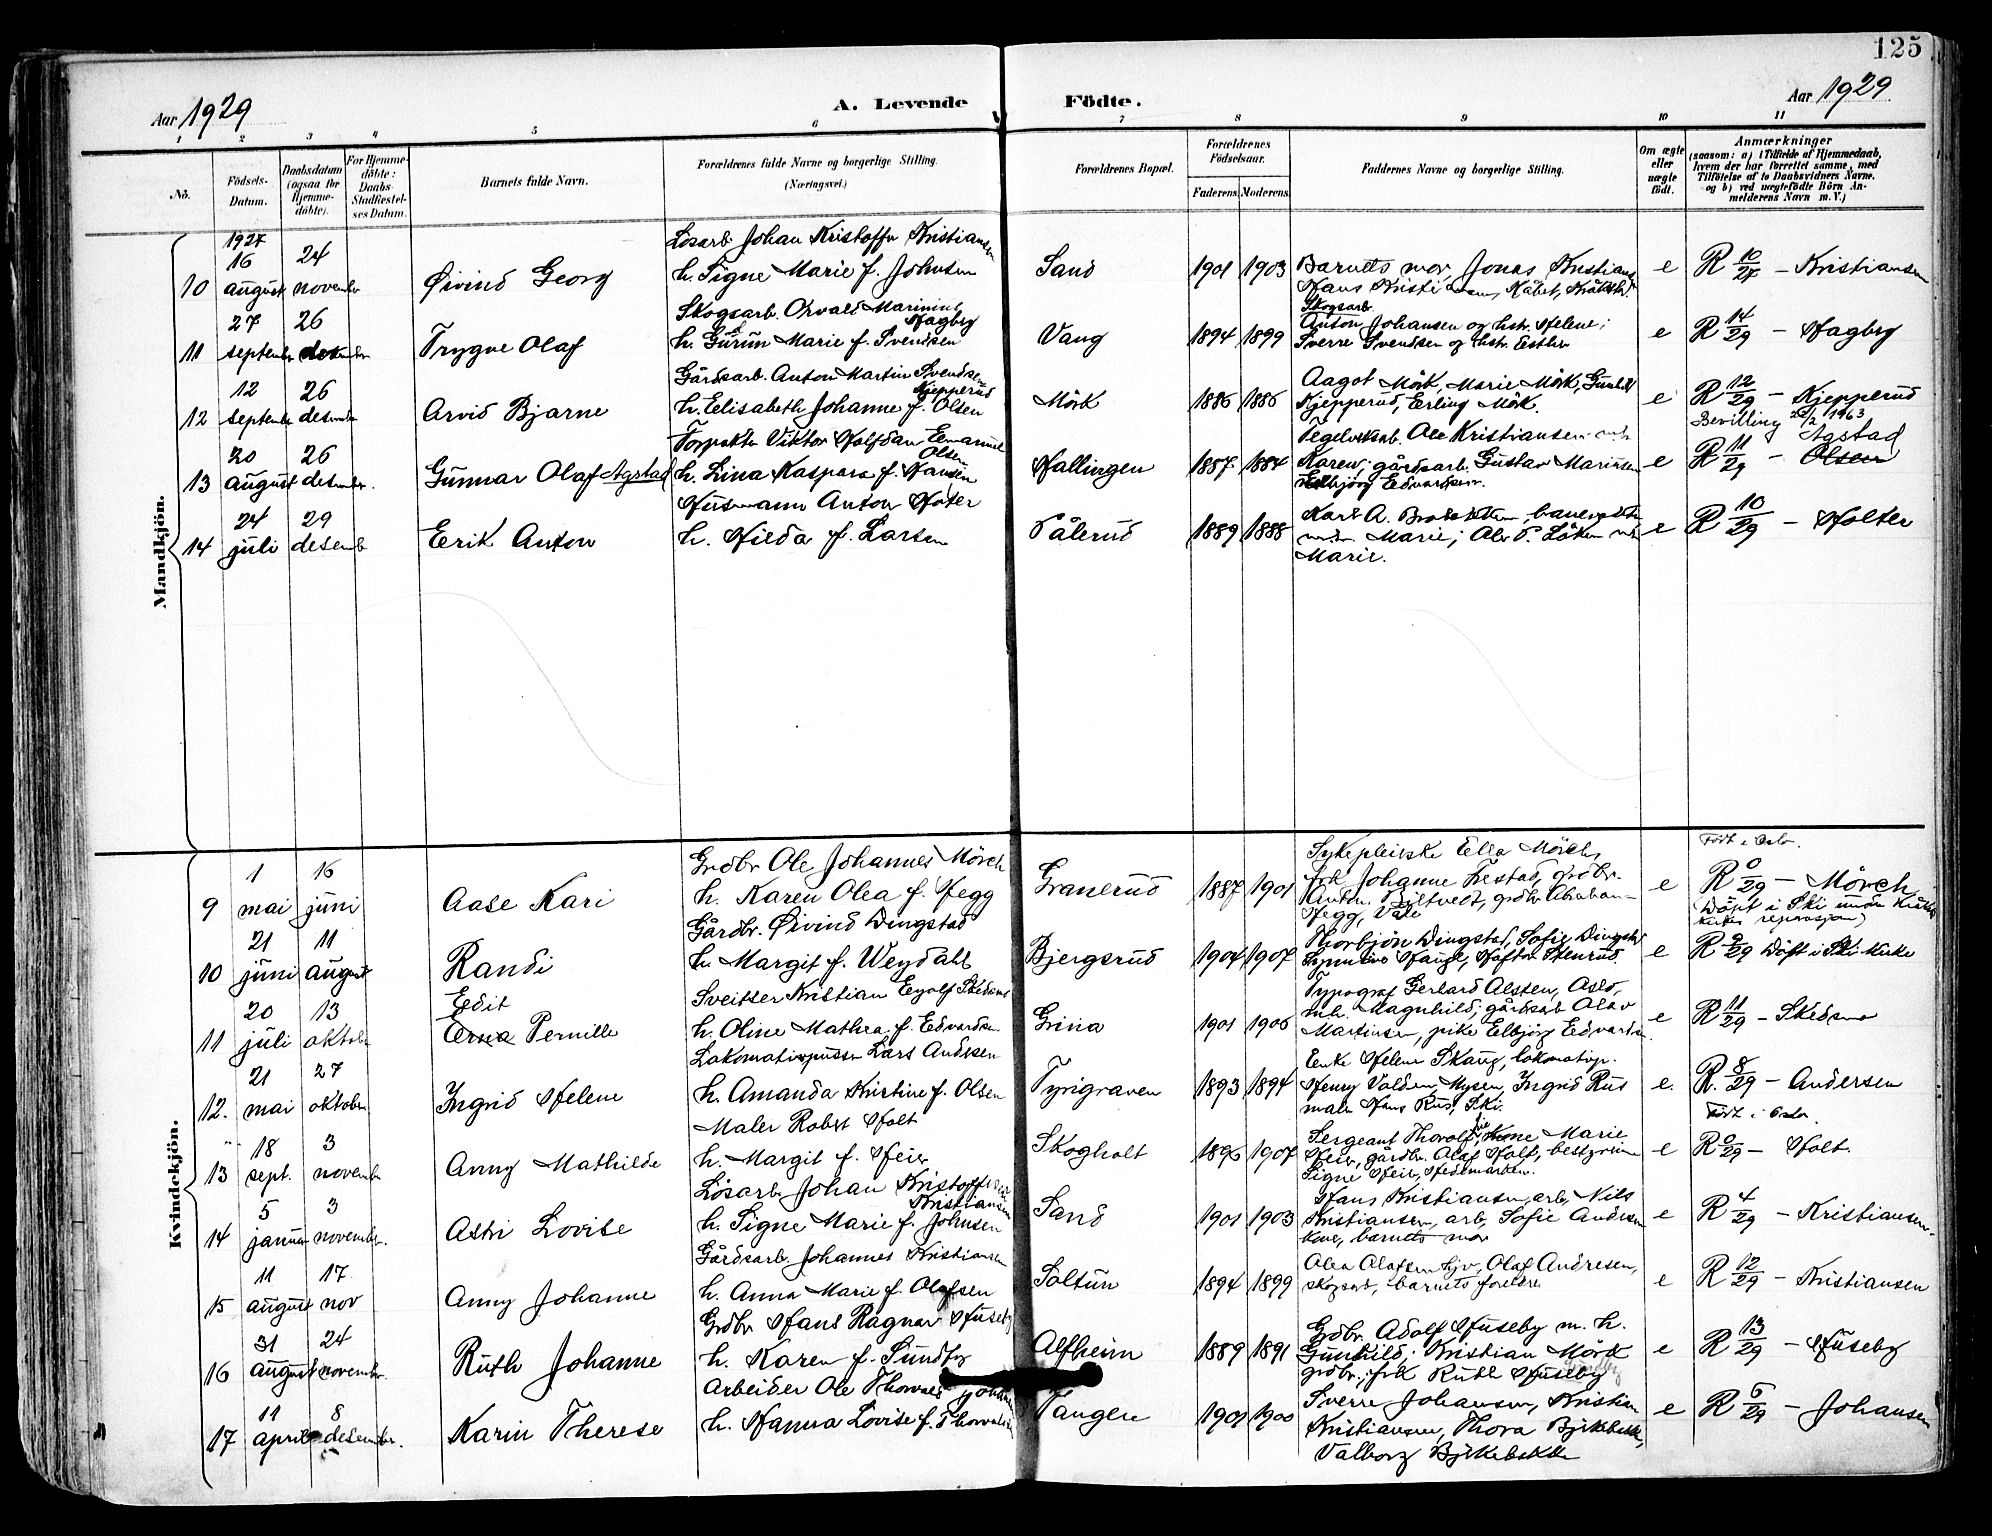 125
Aar 1929
A. Levende Födte.
Aar 1929
1 2 3 4 5 6 7 8 9 10 11
No.
Födsels-Datum.
Daabsdatum (ogsaa for Hjemme-döbte).
For Hjemme-döbte: Daabs-Stadfæstel-ses Datum.
Barnets fulde Navn.
Forældrenes fulde Navne og borgerlige Stilling. (Næringsvei.)
Forældrenes Bopæl.
Forældrenes Födselsaar.
Faderens. Moderens.
Faddernes Navne og borgerlige Stilling.
Om ægte eller uægte födt.
Anmærkninger
(saasom: a) i Tilfælde af Hjemmedaab, hvem der har forrettet samme, med Tilföielse af to Daabsvidners Navne. og b) ved uægtefödte Börn An-melderens Navn m. V.)
Mandkjön.
1927
10 16 august 24 november Øivind Georg
Lösarb. Johan Kristoffer Kristiansen
h. Signe Marie f. Johnsen
Sand 1901 1903
Barnets mor, Jonas Kristians
Hans Kristiansen,
e R 10/27 – Kristiansen
11 27 september 26 desember Trygve Olaf
Skogsarb. Orvald Marinius Hagberg
h. Gurun Marie f. Svendsen
Vang 1894 1899
Skogsarb.
Anton Johansen og hstr. Helene;
Sverre Svendsen og hstr. Esther
e R 14/29 – Hagberg
12 12 september 26 desember Arvid Bjarne
Gårdsarb. Anton Martin Svendsen Kjepperud
h. Elisabeth Johanne f. Olsen
Mörk 1886 1886
Aagot Mörk, Marie Mörk, Gunhild
Kjepperud, Erling Mörk.
e R 12/29 – Kjepperud
Bevilling 22/2 1963
13 20 august 26 desember. Gunnar Olaf Agstad
Forpakter Viktor Halfdan Emanuel Olsen
h. Lina Kaspara f. Hansen
Hallingen 1887 1884
Teglverksarb. Ole Kristiansen
Karen; gårdsarb. Gustav Marinsen
Elbjörg Edvardsen.
e R 11/29 – Olsen
Agstad
14 24 juli 29 desemb Erik Anton
Husmann Anton Holter
h. Hilda f. Larsen
Pålerud 1889 1888
Karl A.
Marie; Ole P. Löken
Marie.
e R 10/29 – Holter
Kvindekjön.
9 1 mai 16 juni Aase Kari
Grdbr Ole Johannes Mörch
h. Karen Olea f. Hegg
Granerud 1887 1901
Sykepleirske Ella Mörch,
frk Johanne Festad, grdbr.
Anton Tiltvedt, grdbr Abraham
Hegg, Våle
e
Født i Oslo.
R 0/29 – Mörch
(Döpt i Ski under
kirkes reparasjon)
10 21 juni 11 august Randi
Gårdbr. Øivind Dingstad
h. Margit f. Weydahl
Bjergsrud 1904 1907
Thorbjörn Dingstad, Sofie Dingstad
Hauge, Stenrud.
e R. 9/29 Döpt i Ski kirke
11 20 juli 13 oktober Edit
Erna Pernille
Sveitser Kristian Eyolf Skedsmo
h. Oline Mathea f. Edvardsen
Grina 1901 1906
Typograf Gerhard Alsten, Oslo,
m.h. Magnhild, gårdsarb Olav
Martinsen, pike Elbjörg Edvardsen
e R 11/29 – Skedsmo
12. 21 mai 27 oktober Ingrid Helene
Lokomotivpusser Lars Andersen
h. Amanda Kirstine f. Olsen
Tyrigraven 1893 1894
Enke Helene Skaug, lokomotivp.
Henry Volden, Mysen, Ingrid Rus
maler Hans Rus, Ski.
e. R. 8/29 – Andersen
13 18 sept. 3 november Anny Mathilde
Maler Robert Holt
h. Margit f. Heier
Skogholt 1896 1907
Sergeant Thorolf, Marie
Heier, gårdbr. Olaf Holt, bestyrerinne
Signe Heier, Hedemarken.
e
Født i Oslo
R 0/29 – Holt.
14 5 januar 3 november. Astri Lovise
Lösarb. Johan Kristoffer Kristiansen
h. Signe Marie f. Johnsen
Sand 1901 1903
Hans Kristiansen, arb, Nils
Kristiansen, arb, Sofie Andersen
kone, barnets mor
e R 4/29 – Kristiansen.
15 11 august 17 nov Anny Johanne
Gårdsarb. Johannes Kristiansen
h. Anna Marie f. Olafsen
Soltun 1894 1899
Olea Olafsen hjv, Olaf Andresen,
skogsarb, barnets foreldre
e R 12/29 – Kristiansen
16 31 august 24 november. Ruth Johanne
Grdbr Hans Ragnar Huseby
h. Karen f. Sundby
Alfheim 1889 1891
Grdbr. Adolf Huseby m. h.
Gunhild; Kristian Mörk
grdbr.; frk Ruth Huseby
Sundby
e R 13/29 – Huseby
17 11 april 8 desember. Karin Therese
Arbeider Ole Johansen
h. Hanna Lovise f. Thorvaldsen
Tangen 1901 1900
Sverre Johansen, Kristian
Kristiansen, Thora Björkebekk,
Valborg Björkebekk
e R 5/29 – Johansen